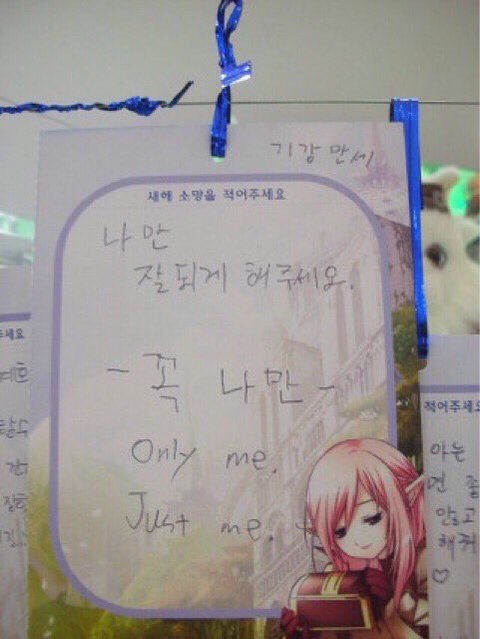 기강 만세
새해 소망을 적어주세요
나만
잘되게 해주세요.
- 꼭 나만 -
Only me.
Just me.
적어주세요
아는
면 좋
않고
해줘
♡